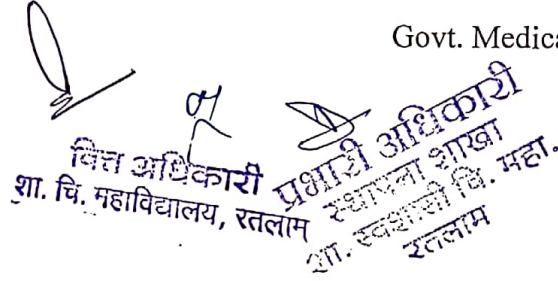 Govt. Medica
वित्त अधिकारी
शा. चि. महाविद्यालय, रतलाम
प्रभारी अधिकारी
स्थापना शाखा
शा. स्वशासी चि. महा.
रतलाम